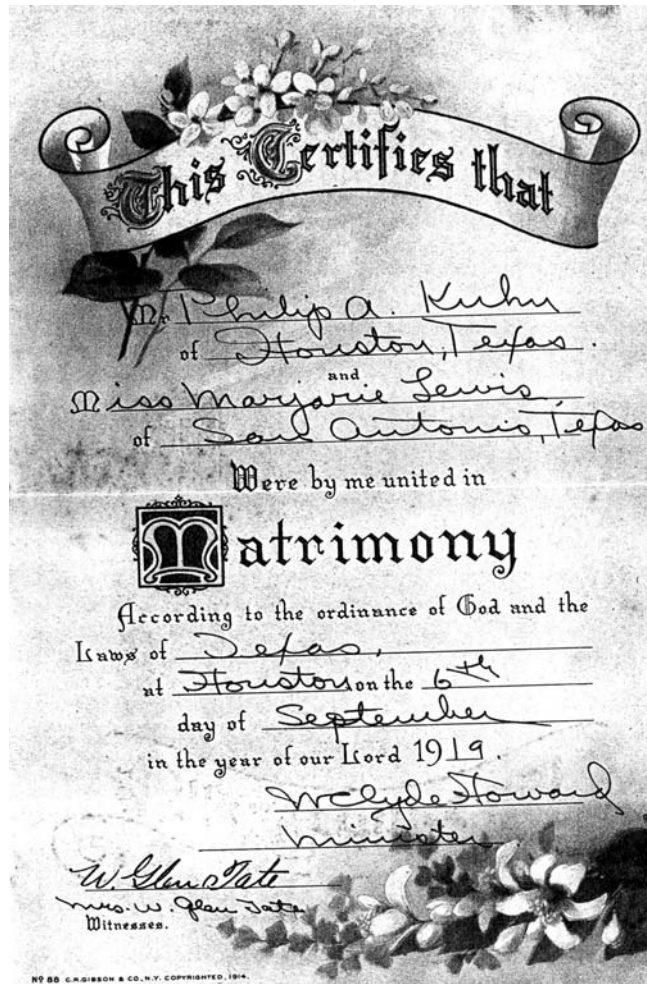 This Certifies that
Mr Philip A. Kuhn
of Houston, Texas.
and
Miss Marjorie Lewis,
of San Antonio, Texas
Were by me united in
Matrimony
According to the ordinance of God and the
Laws of Texas,
at Houston on the 6th
day of September
in the year of our Lord 1919.
W Clyde Howard
Minister
W. Glen Tate
Mrs. W. Glen Tate
Witnesses.
No 88 C.R. GIBSON & CO., N.Y. COPYRIGHTED, 1914.